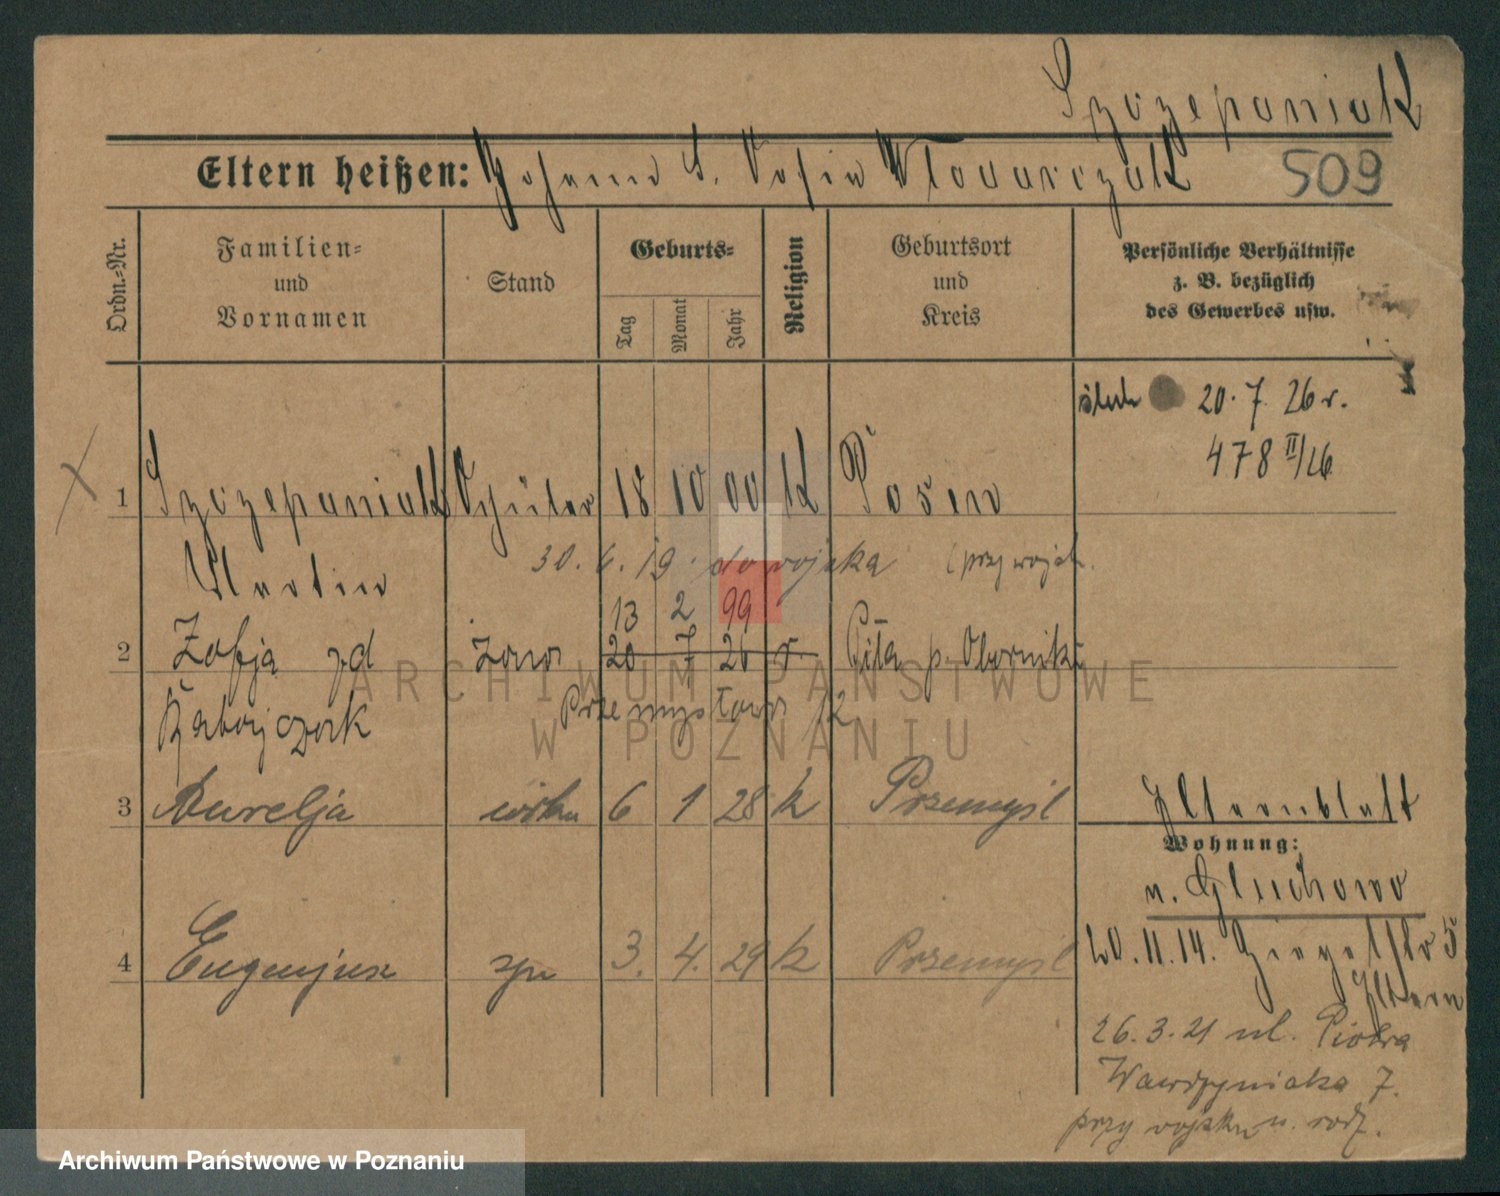 Szczepaniak
Eltern heißen: Johann u. Sofia Włodarczak 509
Ordn.-Nr.
Familien-
und
Vornamen
Stand
Geburts-
Tag
Monat
Jahr
Religion
Geburtsort
und
Kreis
Persönliche Verhältnisse
z. B. bezüglich
des Gewerbes usw.
ślub 20. 7. 26 r.
478 II/26
1 Szczepaniak Schüler 18 10 00 K Posen
Martin
30. 6. 19. do wojska (przy wojsk.
13 2 99
2 Zofja zd żona 20 7 26 r. Piła p. Oborniki
Przemysłowa 12
3 Aurelja córka 6 1 28 k Przemyśl
Elternblatt
Wohnung:
n. Gluchowo
4 Eugenjusz syn 3. 4. 29 k Przemyśl
20. 11. 14. Ziegelstr 5
Eltern
26. 3. 21 ul. Piotra
Wawrzyniaka 7.
przy wojsku u. rodz.
ARCHIWUM PAŃSTWOWE
W POZNANIU
Archiwum Państwowe w Poznaniu